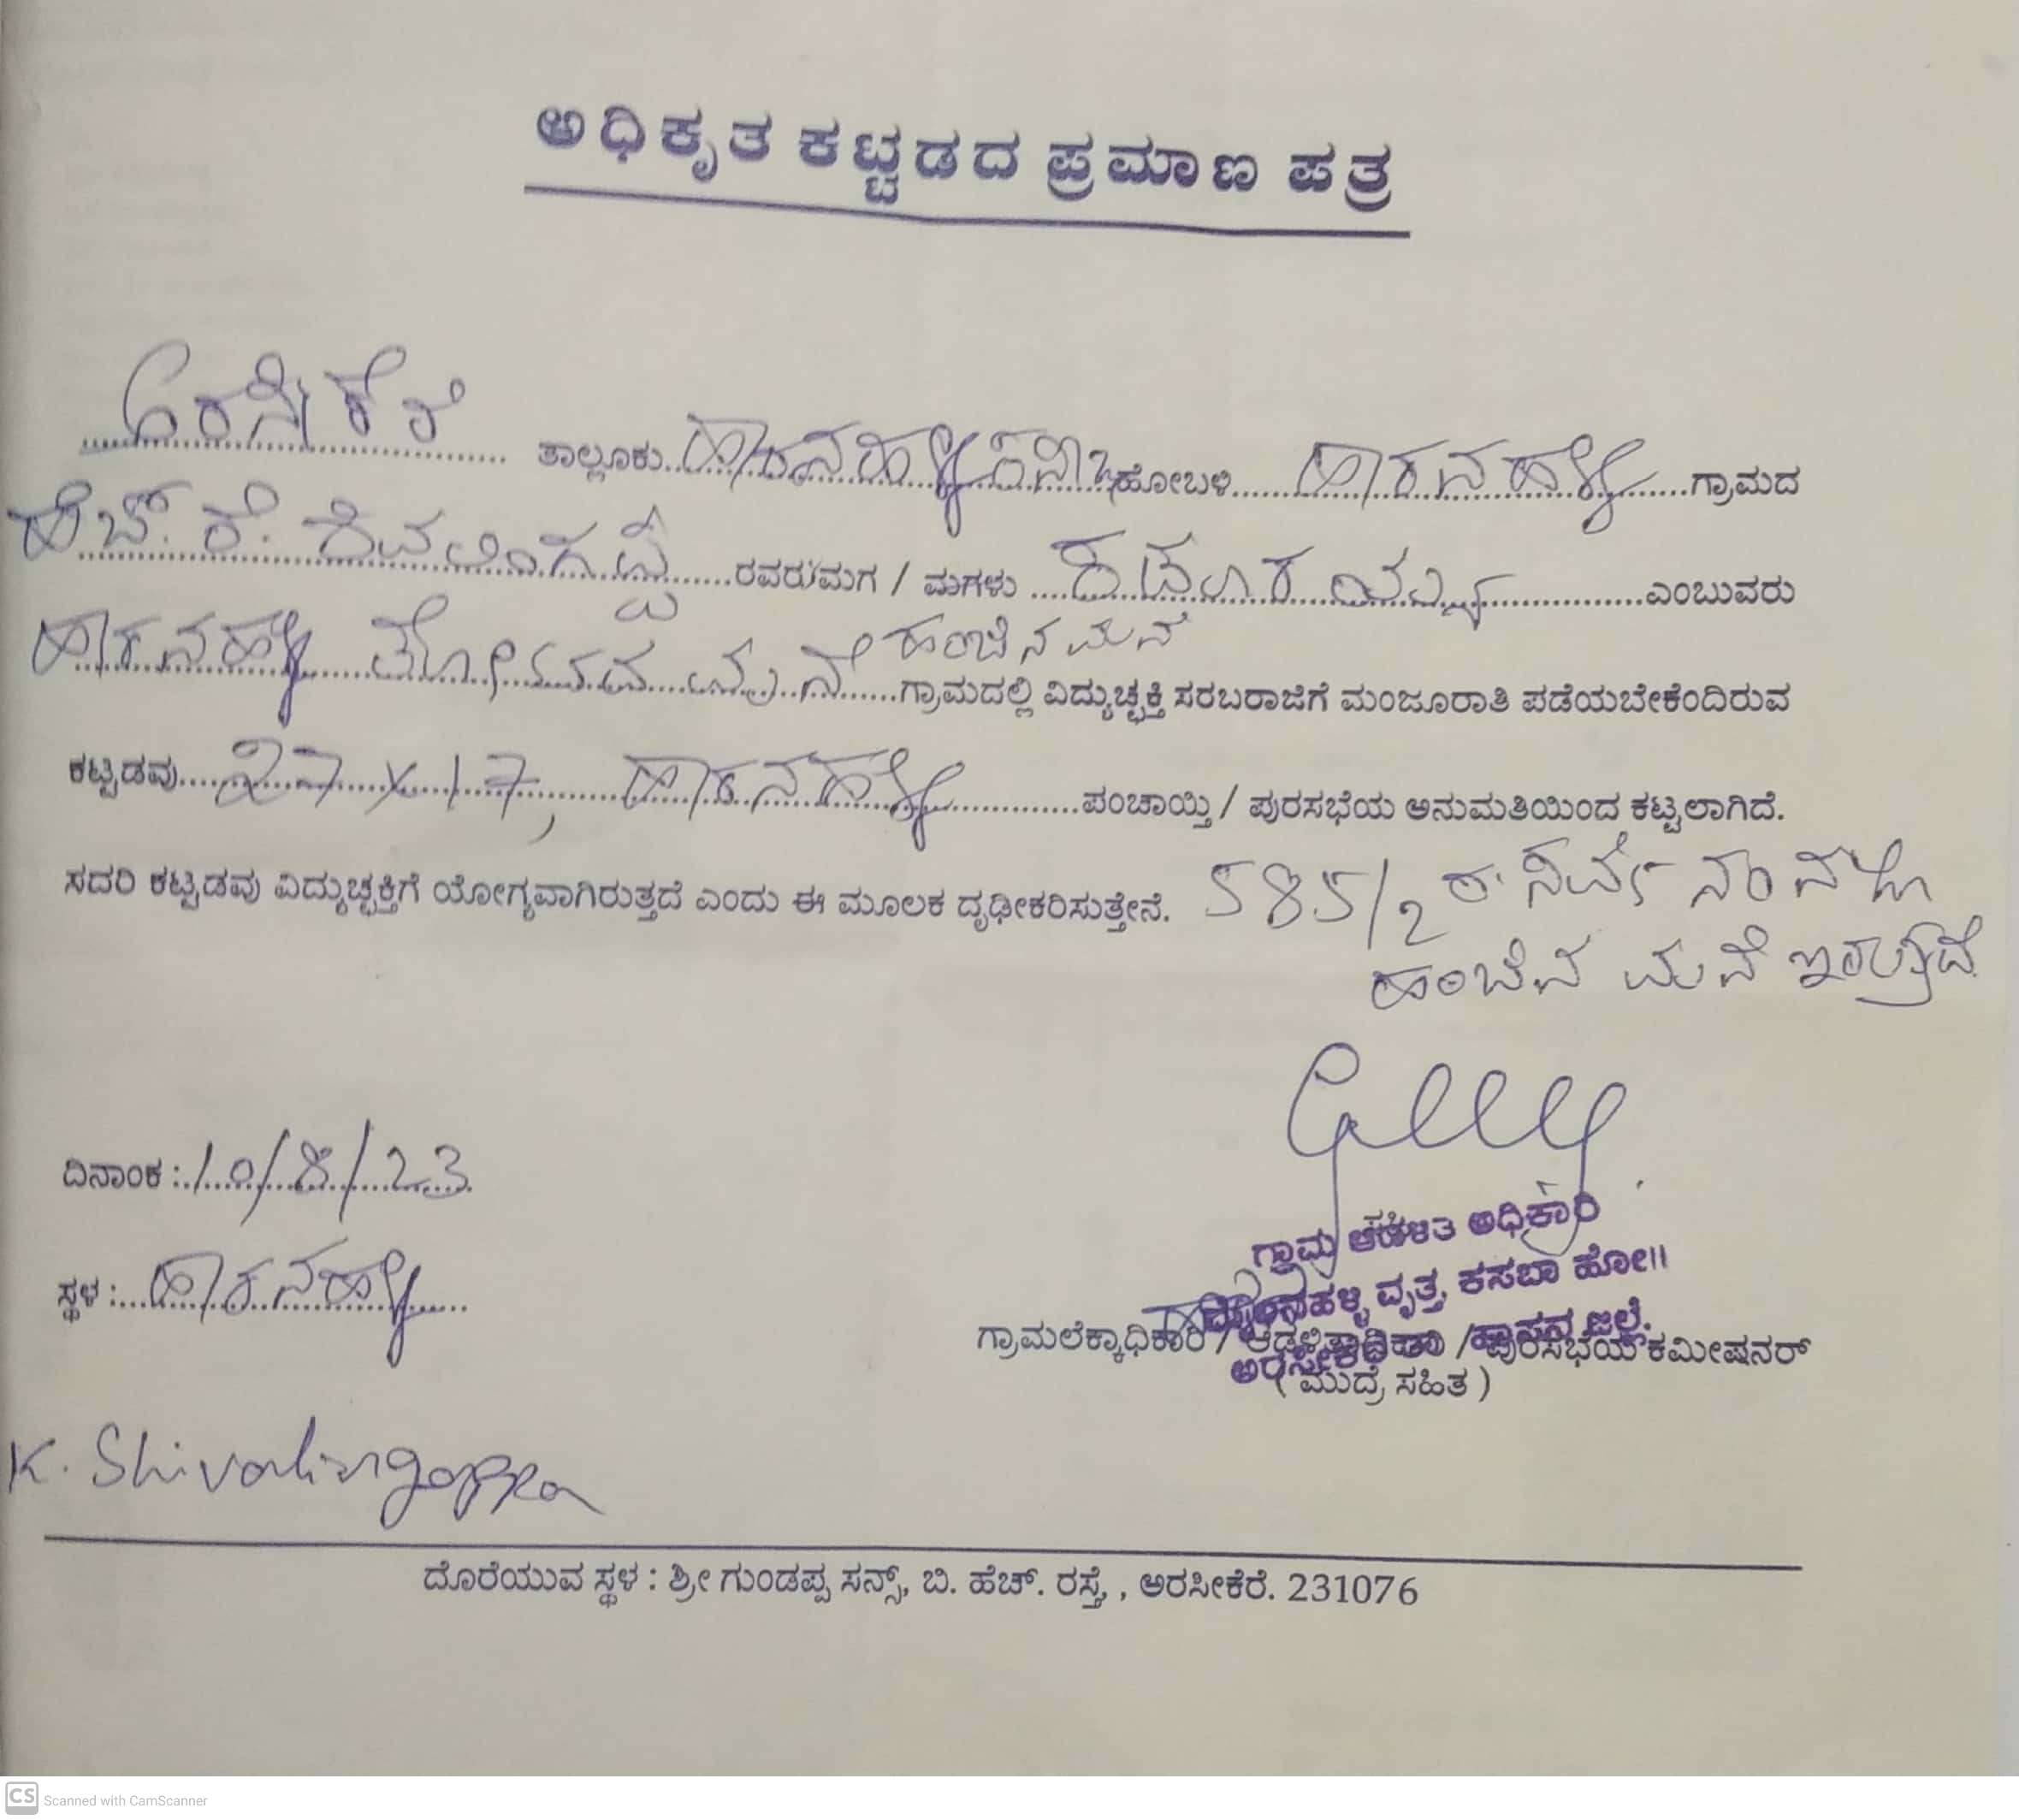 ಅಧಿಕೃತ ಕಟ್ಟಡದ ಪ್ರಮಾಣ ಪತ್ರ
ಅರಸೀಕೆರೆ ತಾಲ್ಲೂಕು ಹಾರನಹಳ್ಳಿ ಹೋಬಳಿ ಹಾರನಹಳ್ಳಿ ಗ್ರಾಮದ
ಹೆಚ್. ಕೆ. ಶಿವಲಿಂಗಪ್ಪ ರವರು/ಮಗ / ಮಗಳು ಎಂಬುವರು
ಹಂಚಿನ ಮನೆ
ಹಾರನಹಳ್ಳಿ ತೋಟದ ಮನೆ ಗ್ರಾಮದಲ್ಲಿ ವಿದ್ಯುಚ್ಛಕ್ತಿ ಸರಬರಾಜಿಗೆ ಮಂಜೂರಾತಿ ಪಡೆಯಬೇಕೆಂದಿರುವ
ಕಟ್ಟಡವು 27 x 17, ಹಾರನಹಳ್ಳಿ ಪಂಚಾಯ್ತಿ / ಪುರಸಭೆಯ ಅನುಮತಿಯಿಂದ ಕಟ್ಟಲಾಗಿದೆ.
ಸದರಿ ಕಟ್ಟಡವು ವಿದ್ಯುಚ್ಛಕ್ತಿಗೆ ಯೋಗ್ಯವಾಗಿರುತ್ತದೆ ಎಂದು ಈ ಮೂಲಕ ದೃಢೀಕರಿಸುತ್ತೇನೆ. 585/2 ರ ಸರ್ವೆ ನಂ
ಹಂಚಿನ ಮನೆ ಇರುತ್ತದೆ
ದಿನಾಂಕ : 10/8/23
ಸ್ಥಳ : ಹಾರನಹಳ್ಳಿ
ಗ್ರಾಮ ಆಡಳಿತ ಅಧಿಕಾರಿ
ವೃತ್ತ, ಕಸಬಾ ಹೋ||
ಅರಸೀಕೆರೆ ಹಾಸನ ಜಿಲ್ಲೆ.
ಗ್ರಾಮಲೆಕ್ಕಾಧಿಕಾರಿ / ಆಡಳಿತಾಧಿಕಾರಿ / ಪುರಸಭೆಯ ಕಮೀಷನರ್
( ಮುದ್ರೆ ಸಹಿತ )
K. Shivalingappa
ದೊರೆಯುವ ಸ್ಥಳ : ಶ್ರೀ ಗುಂಡಪ್ಪ ಸನ್ಸ್, ಬಿ. ಹೆಚ್. ರಸ್ತೆ, , ಅರಸೀಕೆರೆ. 231076
CS Scanned with CamScanner